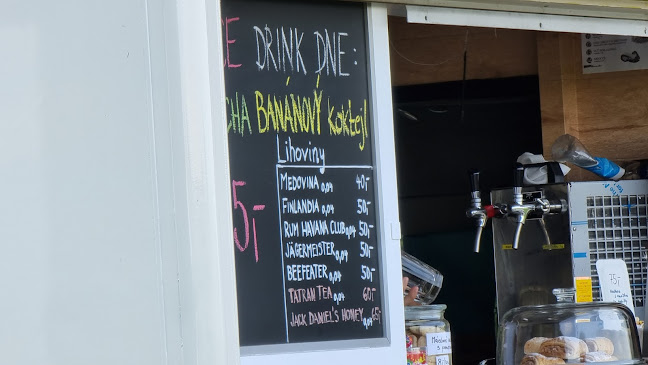 DRINK DNE:
BANÁNOVÝ koktejl
5,-
Lihoviny
MEDOVINA 0,04 40,-
FINLANDIA 0,04 50,-
RUM HAVANA CLUB 0,04 50,-
JÄGERMEISTER 0,04 50,-
BEEFEATER 0,04 50,-
TATRAN TEA 0,04 60,-
JACK DANIEL'S HONEY 0,04 65,-